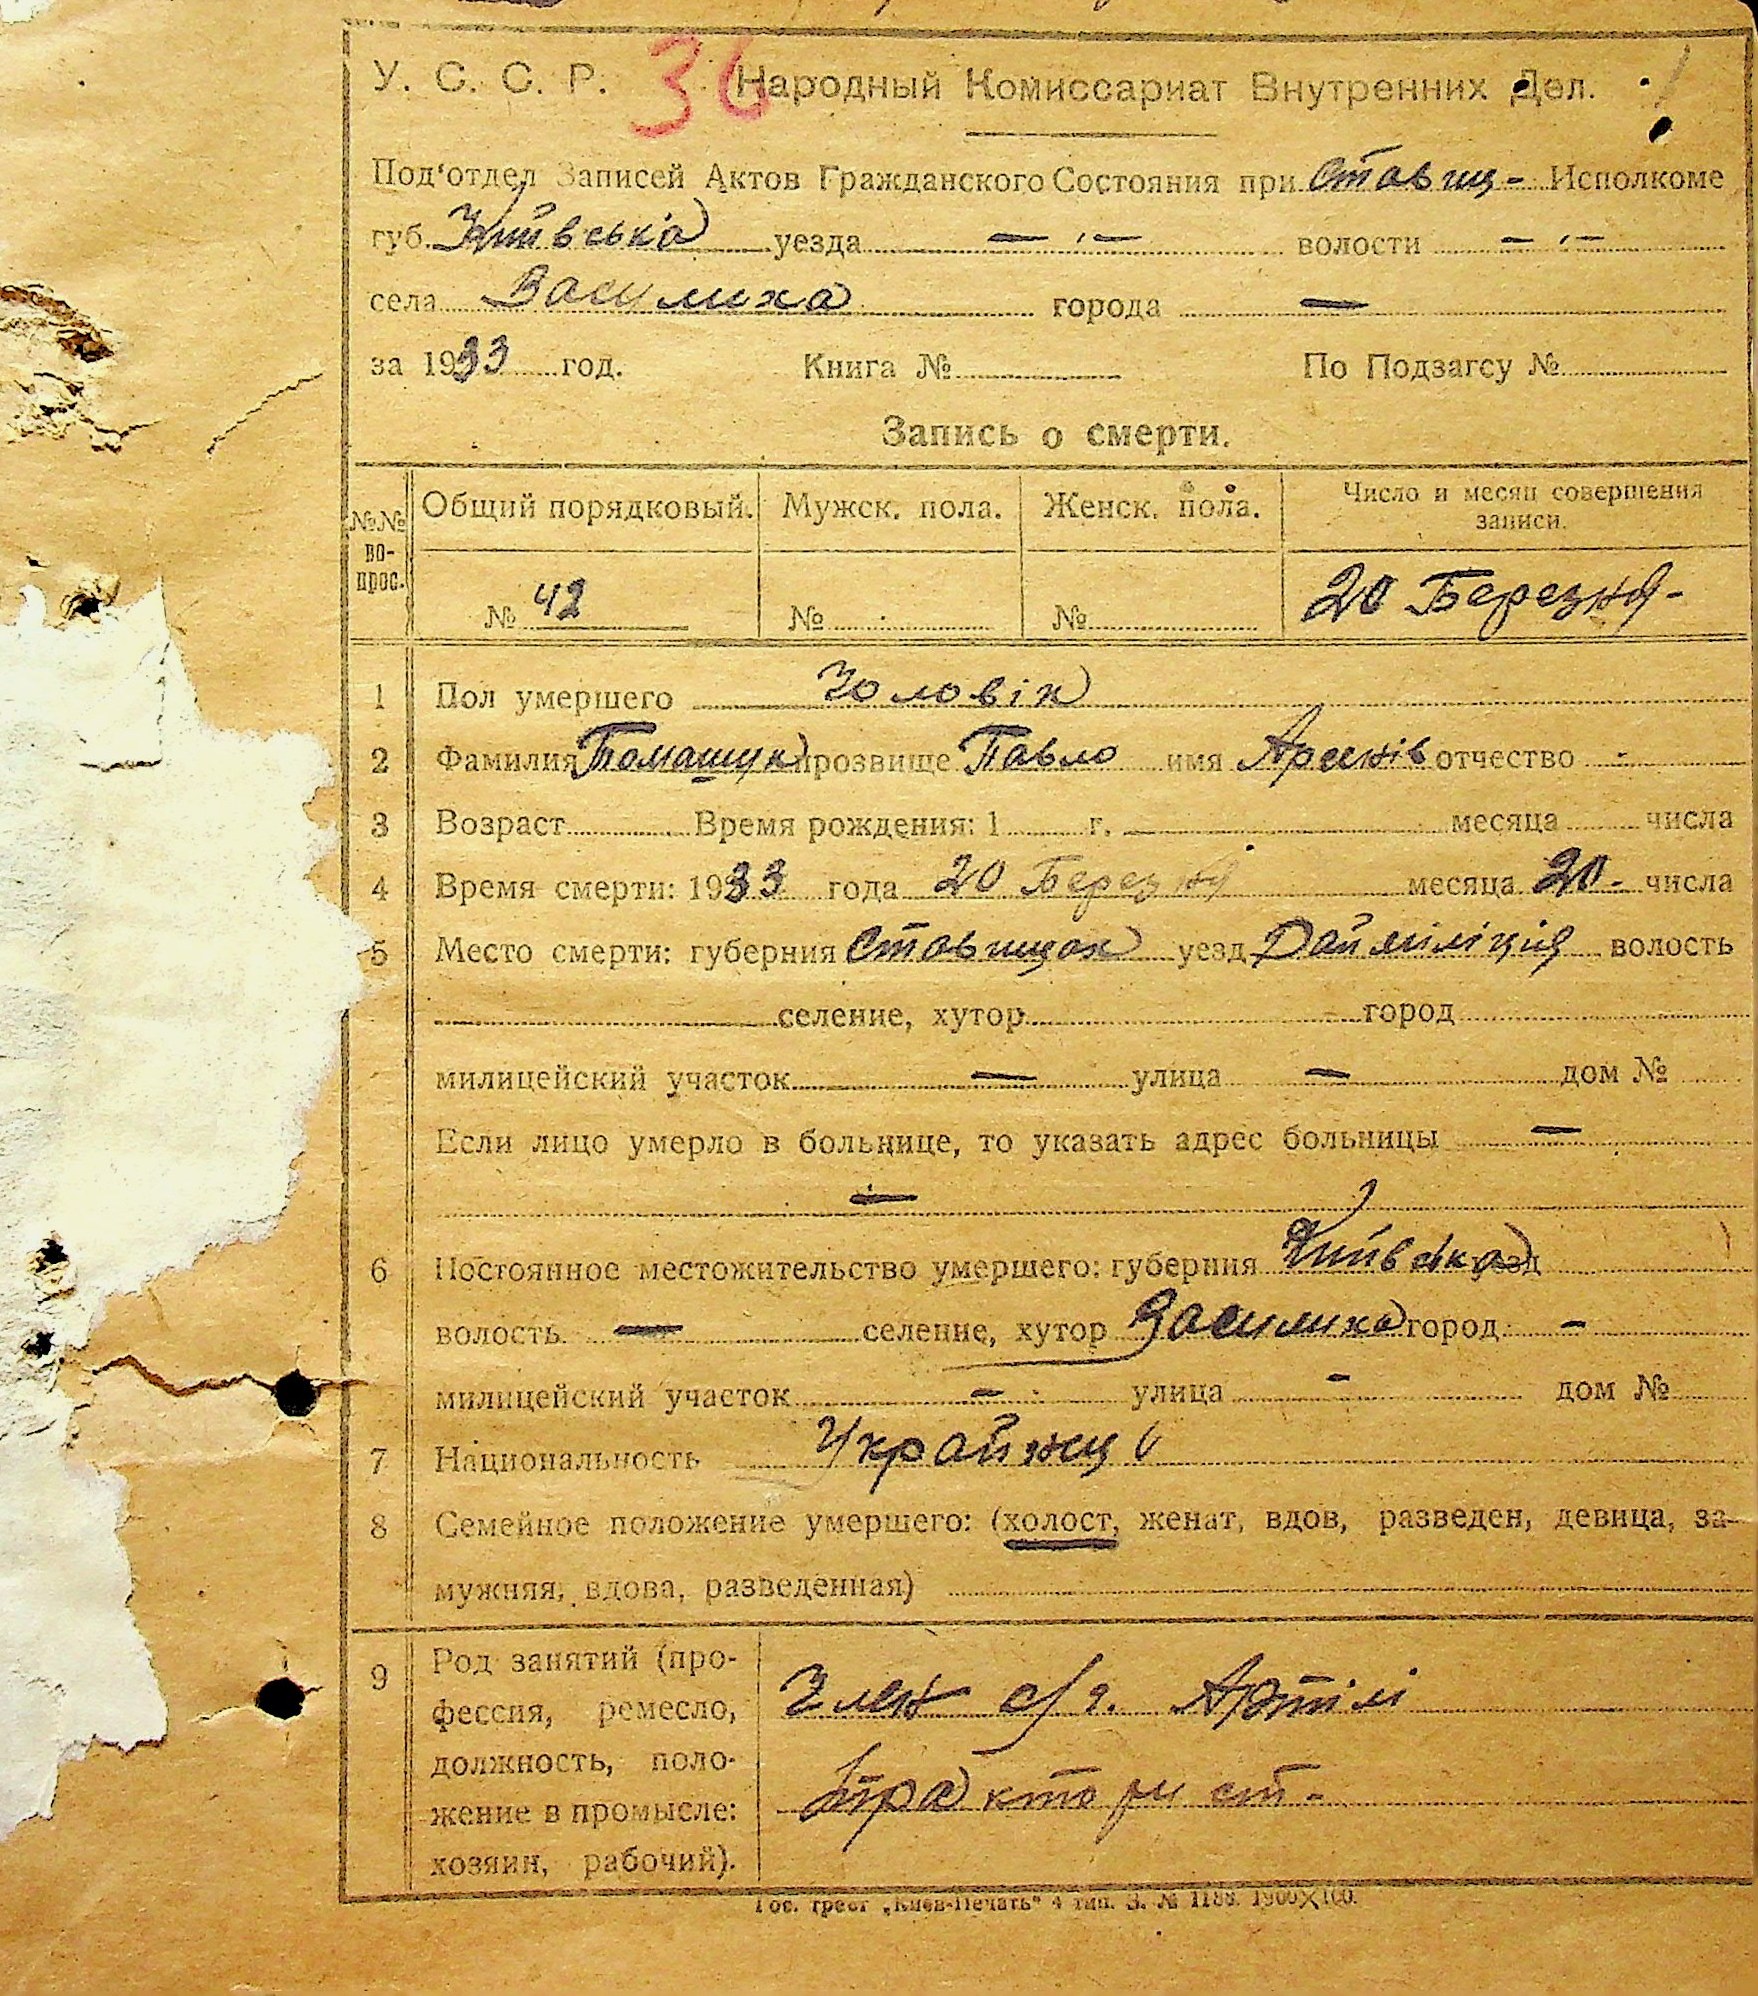 36
У. С. С. Р. Народный Комиссариат Внутренних Дел.
Под'отдел Записей Актов Гражданского Состояния при Ставищ- Исполкоме
губ. Київська уезда — „— волости — „—
села Василиха города —
за 1933 год. Книга № По Подзагсу №
Запись о смерти.
№№ вопрос. Общий порядковый. Мужск. пола. Женск. пола. Число и месяц совершения записи.
№ 42 № № 20 Березня-
1 Пол умершего Чоловік
2 Фамилия Томащук прозвище Павло имя Арсенів отчество -
3 Возраст Время рождения: 1 г. месяца числа
4 Время смерти: 1933 года 20 Березня месяца 20- числа
5 Место смерти: губерния Ставищах уезд Райміліція волость
селение, хутор город
милицейский участок — улица — дом №
Если лицо умерло в больнице, то указать адрес больницы —
—
6 Постоянное местожительство умершего: губерния Київська уезд
волость — селение, хутор Василиха город -
милицейский участок - улица - дом №
7 Национальность
8 Семейное положение умершего: (холост, женат, вдов, разведен, девица, за-
мужняя, вдова, разведенная)
9 Род занятий (про-
фессия, ремесло,
должность, поло-
жение в промысле:
хозяин, рабочий).
Член с/г. Артілі
тракторист-
Гос. трест „Киев-Печать" 4 тип. З. № 1188. 1900×100.